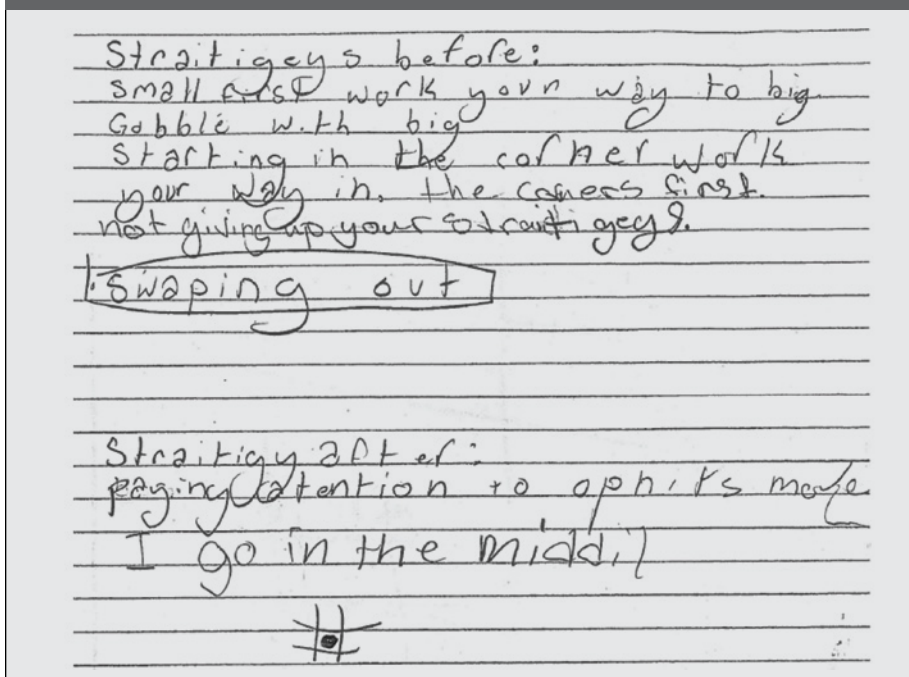 Straitigeys before:
Small first work your way to big
Gobble with big
Starting in the corner work
your way in. the coners first.
not giving up your straitigeys.
Swaping out
Straitigy after:
paying atention to ophits move
I go in the middil